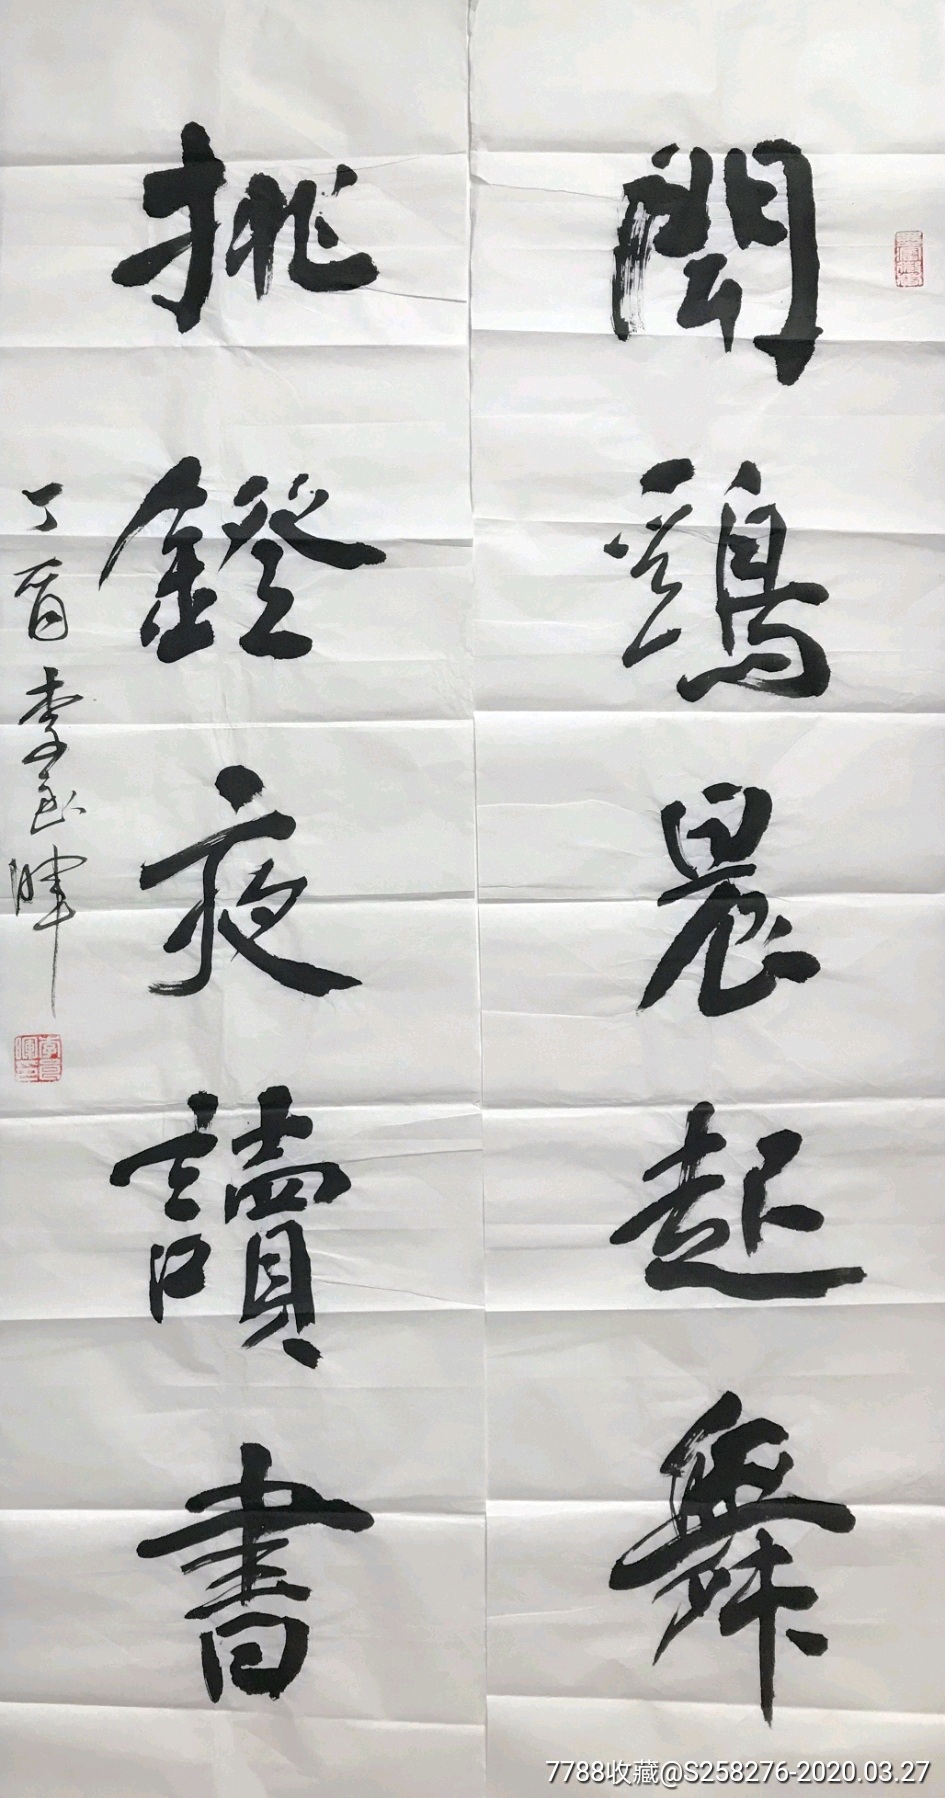 聞鷄晨起舞
挑鐙夜讀書
丁酉李
7788收藏@S258276-2020.03.27